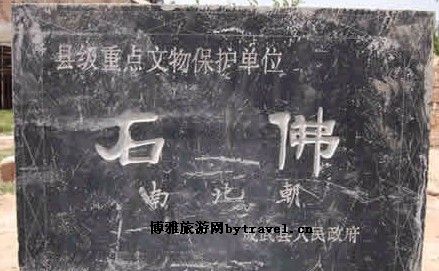 县级重点文物保护单位
石佛
南北朝
博雅旅游网bytravel.cn
武县人民政府